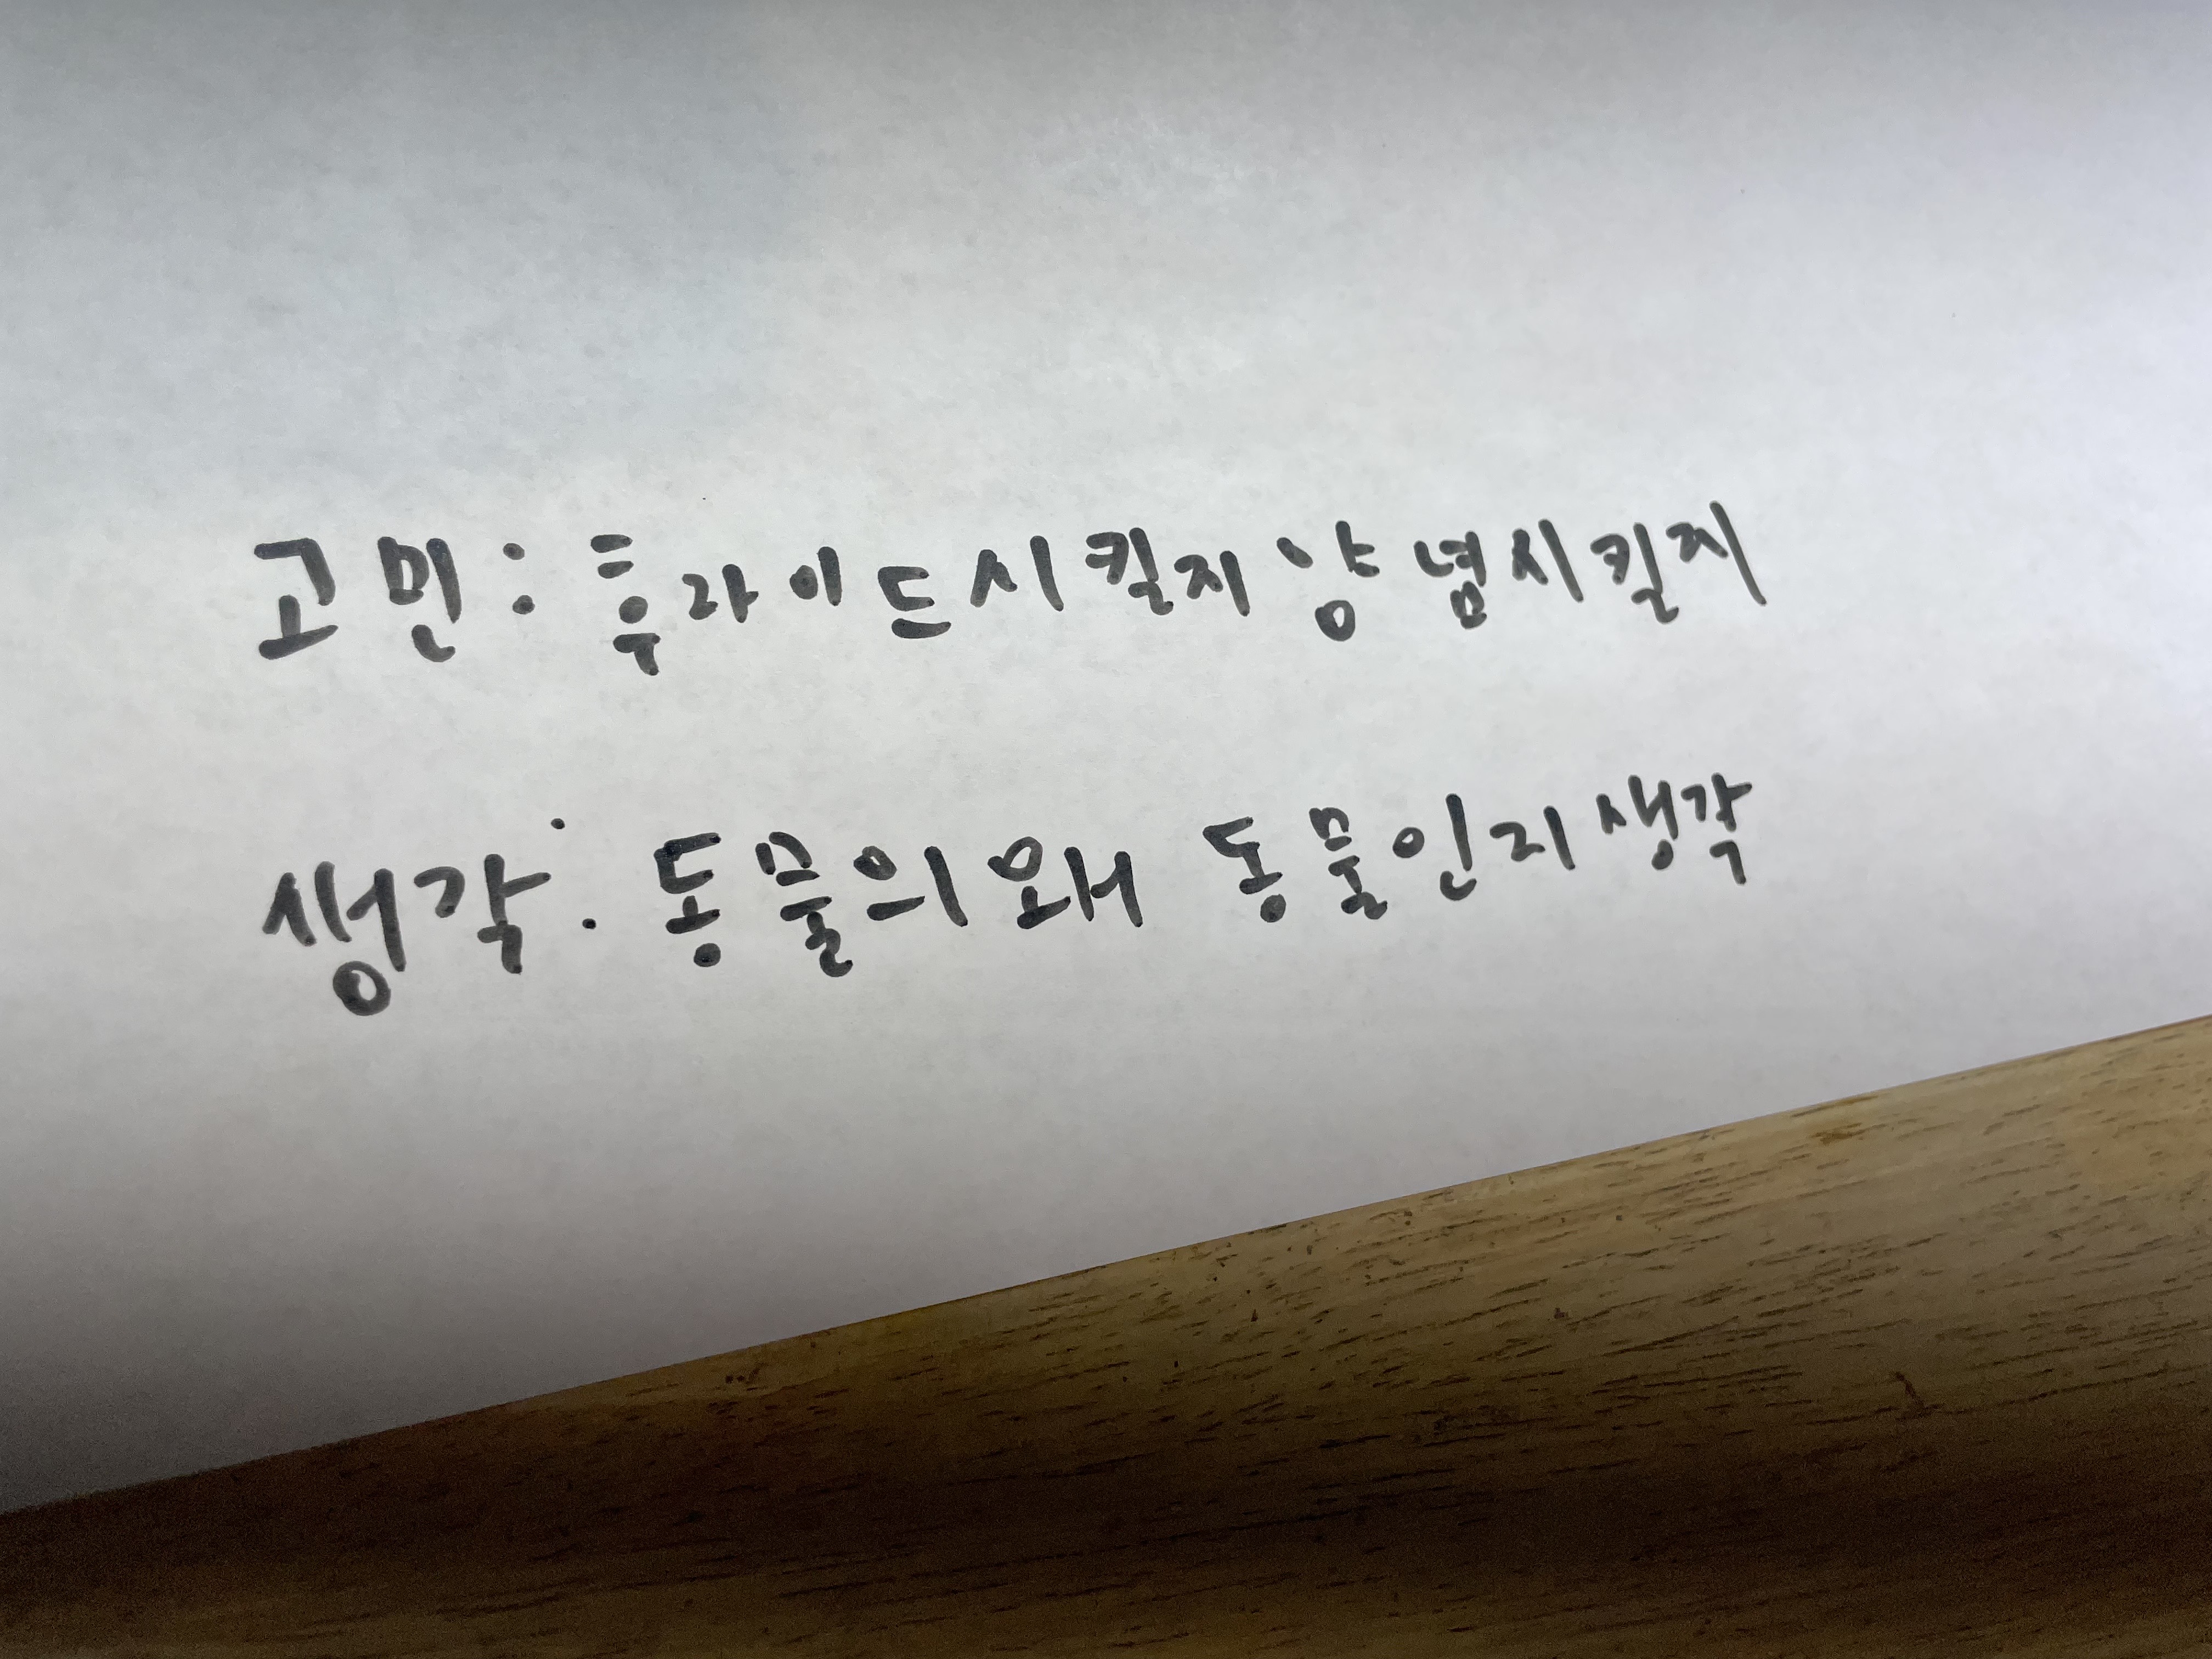 고민: 후라이드시킬지 양념시킬지
생각: 동물의 왜 동물인지 생각